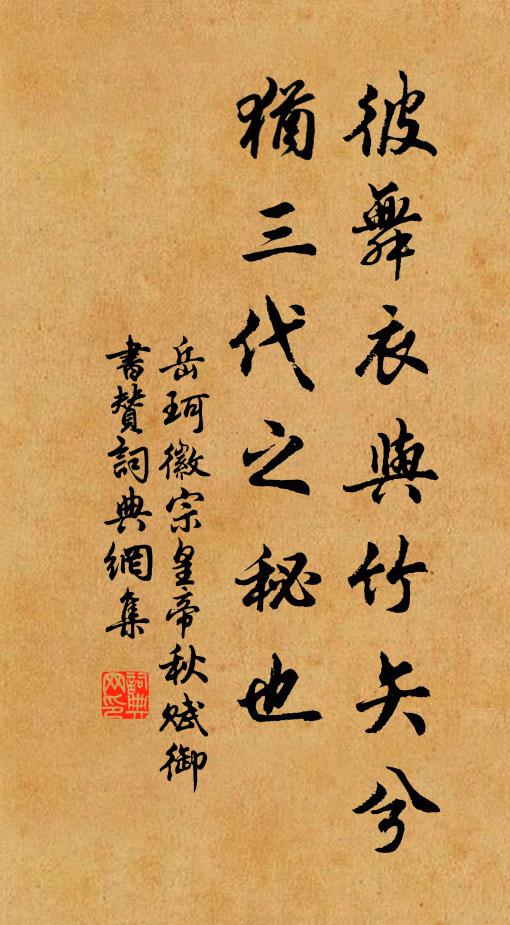 彼舞衣與竹矢兮
猶三代之秘也
岳珂徽宗皇帝秋賦御
書贊詞典網集
詞典网印